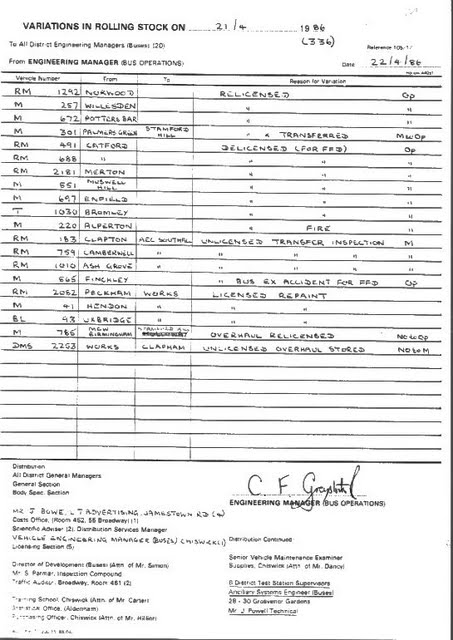 VARIATIONS IN ROLLING STOCK ON 21/4 1986
(336)
To All District Engineering Managers (Buses) (20)
From ENGINEERING MANAGER (BUS OPERATIONS) Date 22/4/86
Vehicle Number From To Reason for Variation
RM 1292 NORWOOD RELICENSED Op
M 257 WILLESDEN " "
M 672 POTTERS BAR " "
M 301 PALMERS GREEN STAMFORD HILL " & TRANSFERRED MtoOp
RM 491 CATFORD DELICENSED (FOR FFD) Op
RM 688 " " " "
RM 2181 MERTON " " "
M 551 MUSWELL HILL " " "
M 697 ENFIELD " " "
T 1030 BROMLEY " " "
M 220 ALPERTON " FIRE "
RM 183 CLAPTON AEC SOUTHALL UNLICENSED TRANSFER INSPECTION M
RM 759 CAMBERWELL " " " " "
RM 1010 ASH GROVE " " " " "
M 565 FINCHLEY " BUS EX ACCIDENT FOR FFD Op
RM 2052 PECKHAM WORKS LICENSED REPAINT
M 41 HENDON " " "
BL 93 UXBRIDGE " " "
M 785 MCW BIRMINGHAM OVERHAUL RELICENSED NotoOp
DMS 2253 WORKS CLAPHAM UNLICENSED OVERHAUL STORED NotoM
Distribution
All District General Managers
General Section
Body Spec. Section
ENGINEERING MANAGER (BUS OPERATIONS)
MR J BOWE, LT ADVERTISING, JAMESTOWN RD
Costs Office, (Room 462, 55 Broadway) (1)
Scientific Adviser (2), Distribution Services Manager
VEHICLE ENGINEERING MANAGER (BUSES) (CHISWICK)
Licensing Section (5)
Distribution Continued:
Director of Development (Buses) (Attn. of Mr. Simon)
Mr. S Parmar, Inspection Compound
Traffic Auditor, Broadway, Room 461 (2)
Senior Vehicle Maintenance Examiner
Supplies, Chiswick (Attn. of Mr. Dancy)
8 District Test Station Supervisors
Ancillary Systems Engineer (Buses)
28 - 30 Grosvenor Gardens
Mr. J Powell Technical
Training School, Chiswick (Attn. of Mr. Carter)
Statistical Office, (Aldenham)
Purchasing Officer, Chiswick (Attn. of Mr.